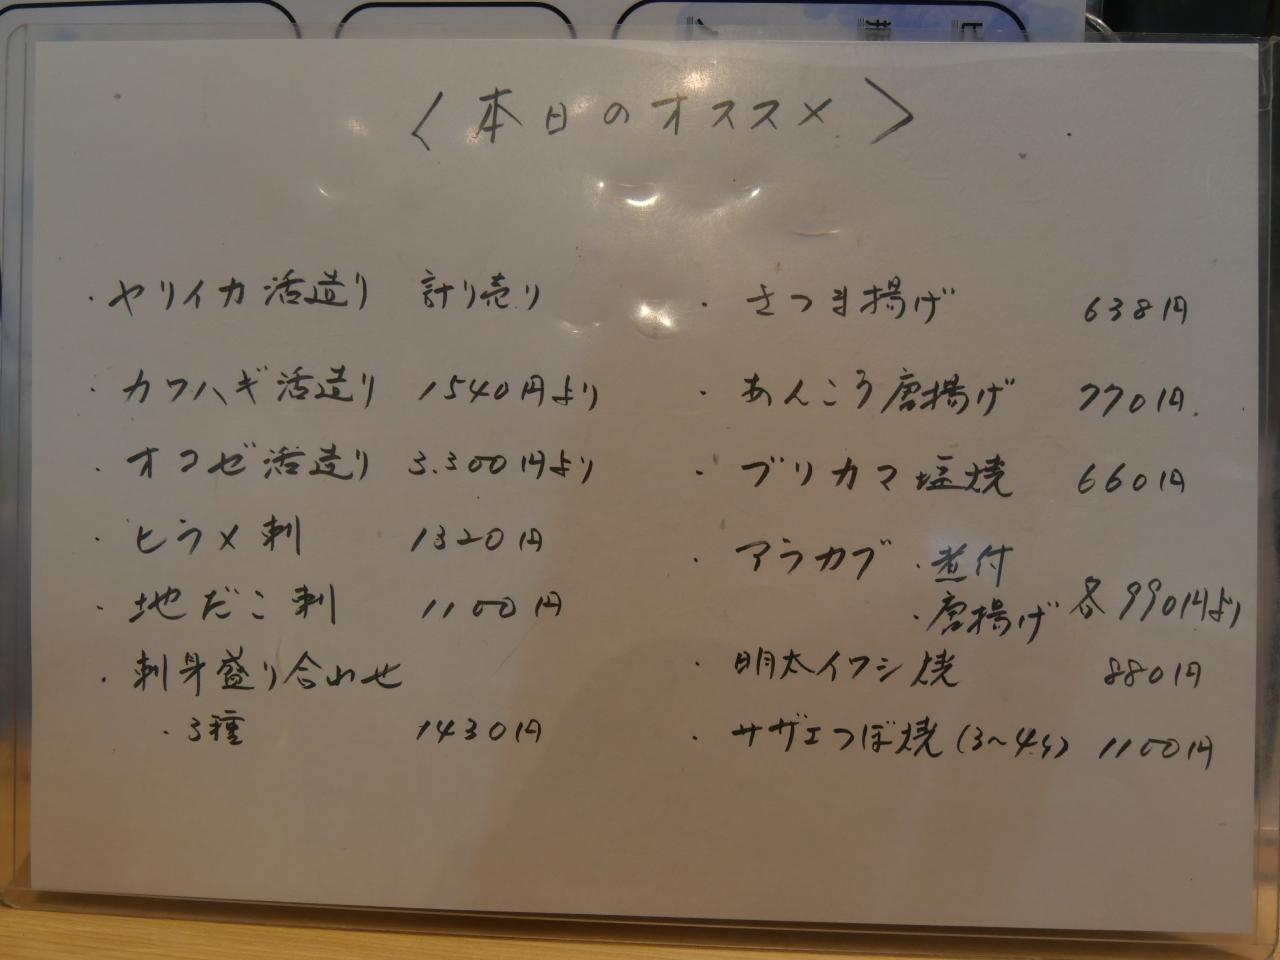 〈本日のオススメ〉
・ヤリイカ活造り 計り売り
・カワハギ活造り 1540円より
・オコゼ活造り 3.300円より
・ヒラメ刺 1320円
・地だこ刺 1100円
・刺身盛り合わせ
・3種 1430円
・さつま揚げ 638円
・あんこう唐揚げ 770円.
・ブリカマ塩焼 660円
・アラカブ ・煮付
・唐揚げ 各990円より
・明太イワシ焼 880円
・サザエつぼ焼(3~4ケ) 1100円